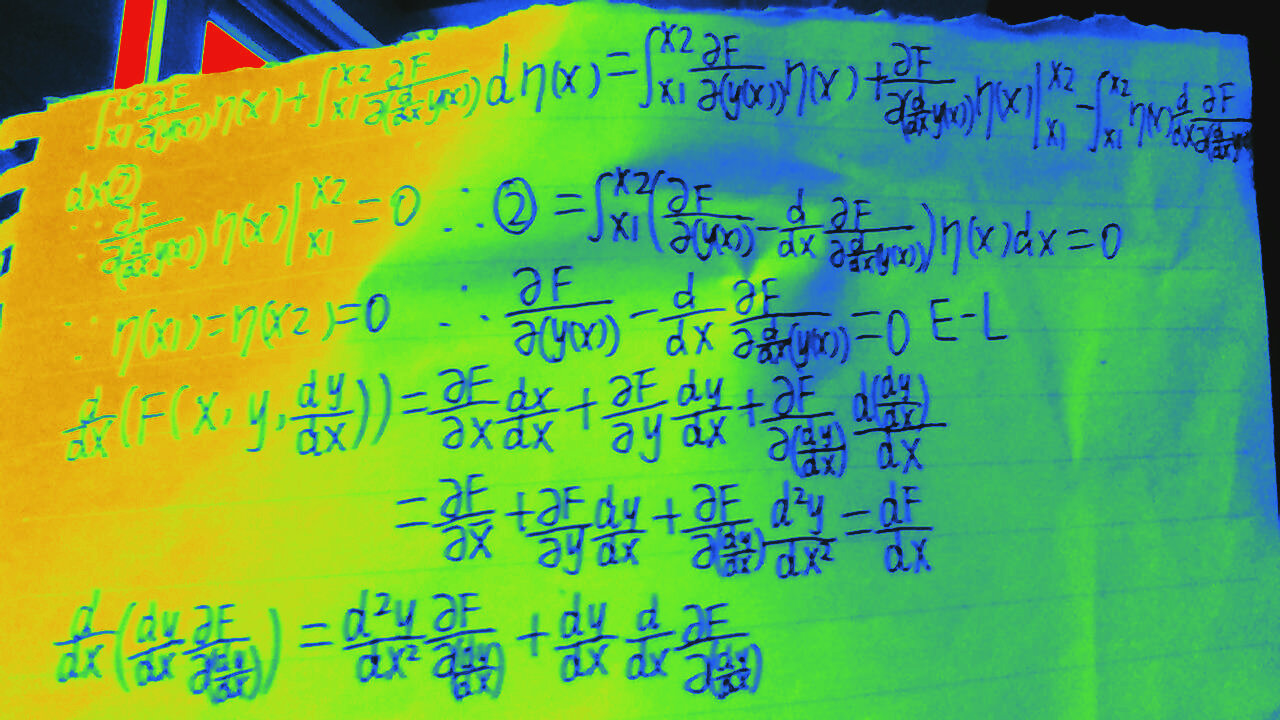 ∫_{x1}^{x2} ∂F/∂(y(x)) η(x) + ∫_{x1}^{x2} ∂F/∂(d/dx y(x)) dη(x) = ∫_{x1}^{x2} ∂F/∂(y(x)) η(x) + ∂F/∂(d/dx y(x)) η(x) |_{x1}^{x2} - ∫_{x1}^{x2} η(x) d/dx ∂F/∂(d/dx y(x)
dx②
∵ ∂F/∂(d/dx y(x)) η(x) |_{x1}^{x2} = 0 ∴ ② = ∫_{x1}^{x2} (∂F/∂(y(x)) - d/dx ∂F/∂ d/dx (y(x))) η(x) dx = 0
∵ η(x1) = η(x2) = 0 ∴ ∂F/∂(y(x)) - d/dx ∂F/∂ d/dx (y(x)) = 0 E-L
d/dx (F(x, y, dy/dx)) = ∂F/∂x dx/dx + ∂F/∂y dy/dx + ∂F/∂(dy/dx) d(dy/dx)/dx
= ∂F/∂x + ∂F/∂y dy/dx + ∂F/∂(dy/dx) d²y/dx² = dF/dx
d/dx (dy/dx ∂F/∂(dy/dx)) = d²y/dx² ∂F/∂(dy/dx) + dy/dx d/dx ∂F/∂(dy/dx)